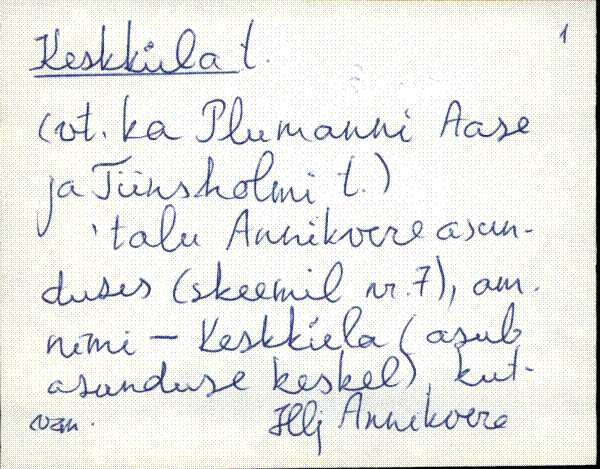 Keskküla t. 1
(vt. ka Plumanni Aase
ja Tiinsholmi t.)
'talu Annikvere asun-
duses (skeemil nr. 7), am.
nimi – Keskküla (asub
asunduse keskel), kut-
vzn. Hlj Annikvere